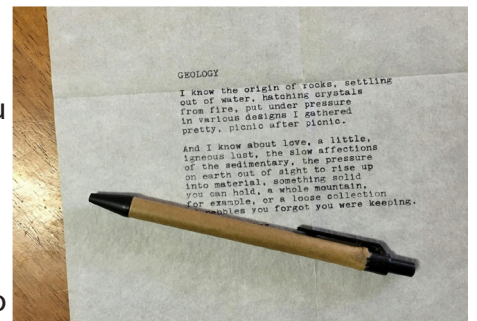 u
GEOLOGY
I know the origin of rocks, settling
out of water, hatching crystals
from fire, put under pressure
in various designs I gathered
pretty, picnic after picnic.
And I know about love, a little,
igneous lust, the slow affections
of the sedimentary, the pressure
on earth out of sight to rise up
into material, something solid
you can hold, a whole mountain,
for example, or a loose collection
pebbles you forgot you were keeping.